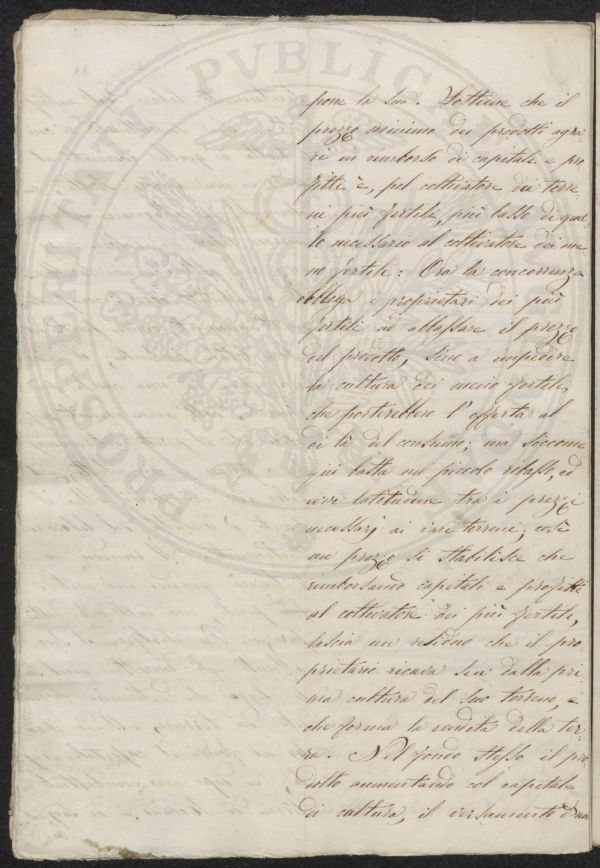 PROSPERITATI PUBLICAE
pone la sua. Sostiene che il
prezzo minimo dei prodotti agra-
ri in rimborso di capitale e pro-
fitti è, pel coltivatore dei terre-
ni più fertili, più basso di quel-
lo necessario al coltivatore dei me-
no fertili: Ora la concorrenza
obbliga i proprietari dei più
fertili ad abbassare il prezzo
del prodotto, sino a impedire
la cultura dei meno fertili,
che porterebbero l'offerta al
di là del consumo; ma siccome
qui basta un piccolo ribasso, ed
vive latitudine tra i prezzi
necessarj ai varj terreni, così
un prezzo si stabilisce che
rimborsando capitali e profitti
al coltivatore dei più fertili,
lascia un residuo che il pro-
prietario ricava sin dalla pri-
ma cultura del suo terreno, e
che forma la rendita della ter-
ra. Nel fondo stesso il pro-
dotto aumentando col capitale
di cultura, il versamento d'una